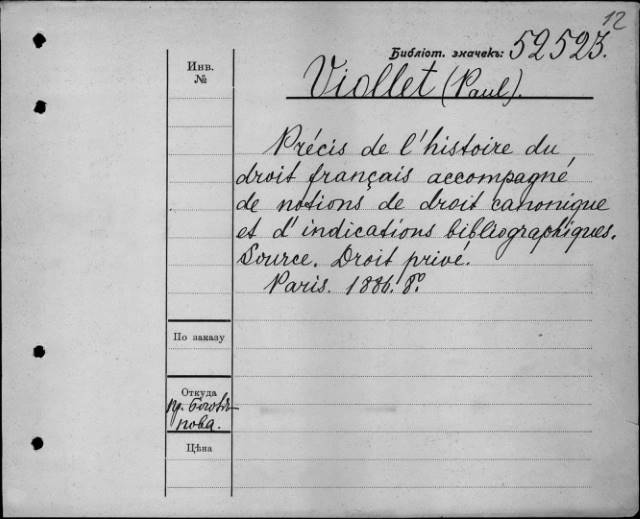 12
Библіот. значекъ: 52523.
Инв.
№
Viollet (Paul).
Précis de l'histoire du
droit français accompagné
de notions de droit canonique
et d'indications bibliographiques.
Source. Droit privé.
Paris. 1886. 8º.
По заказу
Откуда
пр. Боголѣ-
пова.
Цѣна